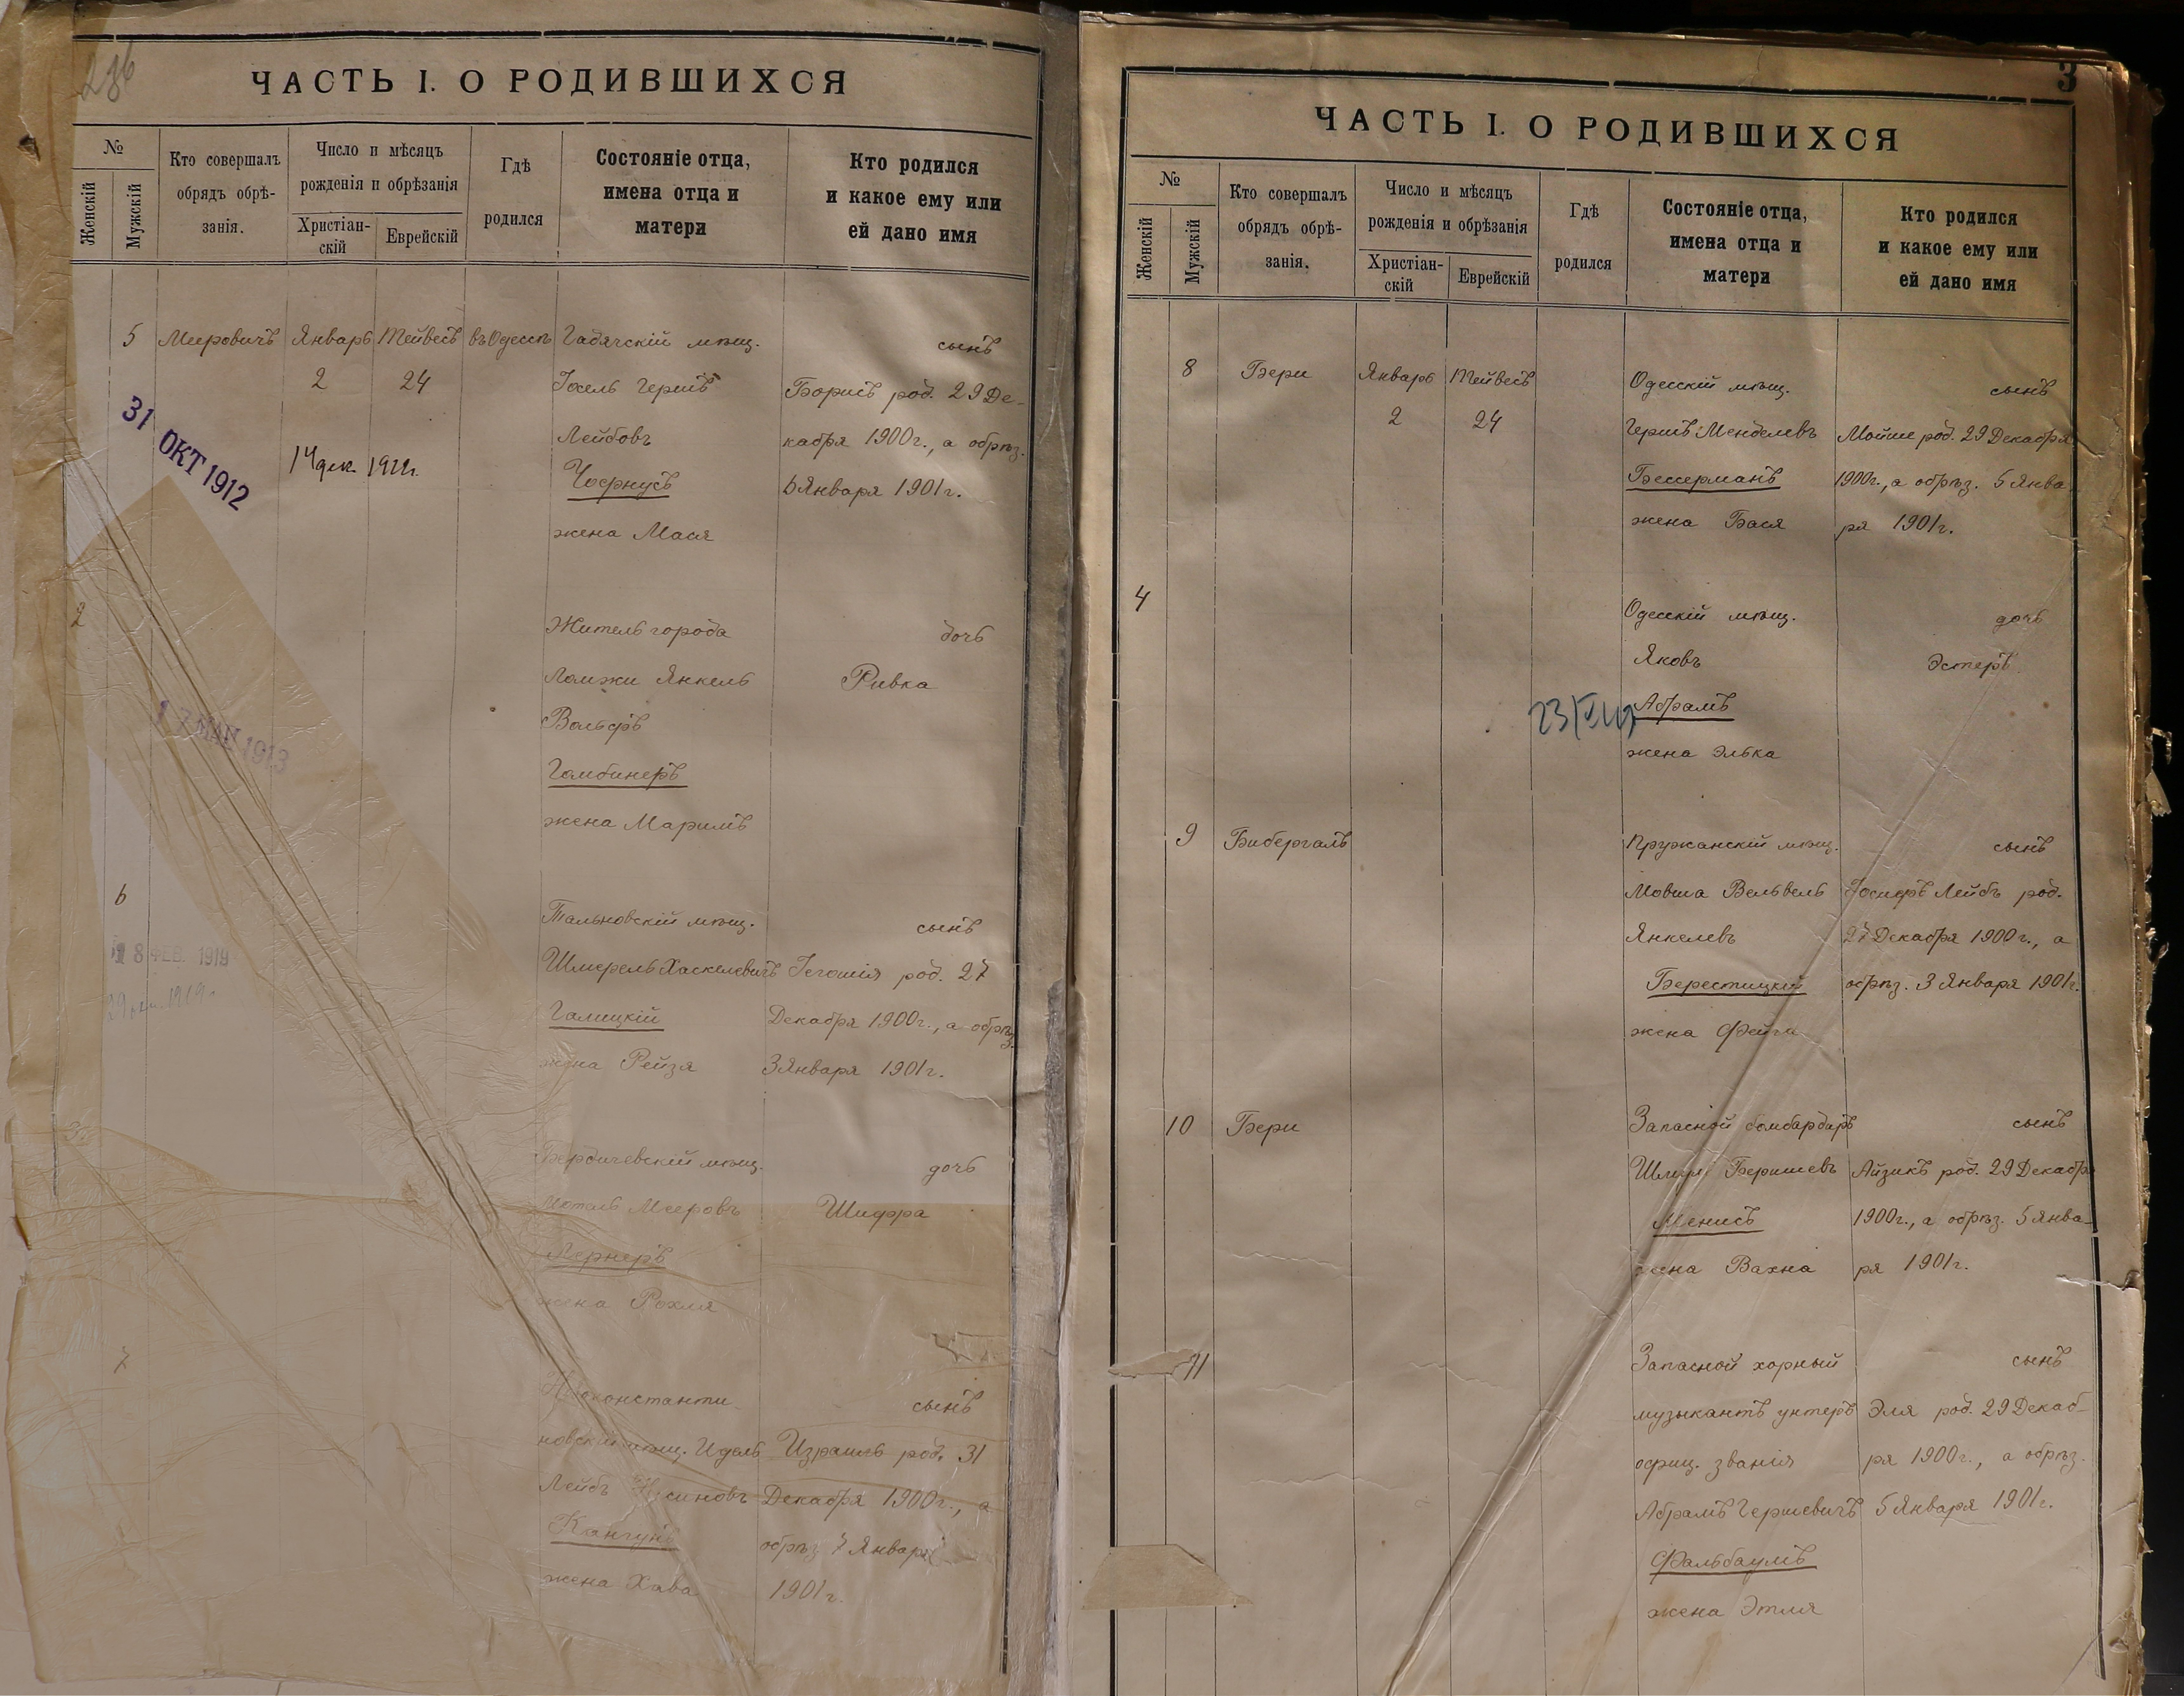 236
ЧАСТЬ I. О РОДИВШИХСЯ
№
Женскій
Мужскій
Кто совершалъ
обрядъ обрѣ-
занія.
Число и мѣсяцъ
рожденія и обрѣзанія
Христіан-
скій
Еврейскій
Гдѣ
родился
Состояніе отца,
имена отца и
матери
Кто родился
и какое ему или
ей дано имя
5 Мееровичъ Январь Тейвесъ въ Одессѣ Гадячскій мѣщ. сынъ
2 24 Іосель Гершъ Борисъ род. 29 Де-
Лейбовъ кабря 1900г., а обрѣз.
31 ОКТ 1912
14 дек. 1911г.
5 Января 1901г.
жена Мася
2
Житель города дочь
Ломжи Янкель Ривка
Вольфъ
17 МАЙ 1913
Гомбинеръ
жена Маримъ
6
Тальновскій мѣщ. сынъ
8 ФЕВ. 1919
Шмерель Хаскелевичъ Іегошія род. 27
Галицкій Декабря 1900г., а обрѣз.
жена Рейзя 3 Января 1901г.
Бердичевскій мѣщ. дочь
Мееровъ Шифра
Лернеръ
жена Рохля
7
Новоконстанти сынъ
новскій мѣщ. Идель Израиль род. 31
Лейбъ Декабря 1900г., а
обрѣз 7 Января
жена Хава 1901г.
3
ЧАСТЬ I. О РОДИВШИХСЯ
№
Женскій
Мужскій
Кто совершалъ
обрядъ обрѣ-
занія.
Число и мѣсяцъ
рожденія и обрѣзанія
Христіан-
скій
Еврейскій
Гдѣ
родился
Состояніе отца,
имена отца и
матери
Кто родился
и какое ему или
ей дано имя
8 Бери Январь Тейвесъ Одесскій мѣщ. сынъ
2 24 Гершъ Менделевъ Мойше род. 29 Декабря
Бессерманъ 1900г., а обрѣз. 5 Янва
жена Бася ря 1901г.
4
Одесскій мѣщ. дочь
Яковъ Эстеръ
Абрамъ
жена Элька
9 Бибергалъ Пружанскій мѣщ. сынъ
Мовша Вельвель Іосифъ Лейбъ род.
Янкелевъ 27 Декабря 1900г., а
Берестицкій обрѣз. 3 Января 1901г.
жена Фейга
10 Бери Запасной бомбардиръ сынъ
Беришевъ Айзикъ род. 29 Декабря
Менисъ 1900г., а обрѣз. 5 Янва-
жена Вахна ря 1901г.
11
Запасной хорный сынъ
музыкантъ унтеръ Эля род. 29 Декаб-
офиц. званія ря 1900г., а обрѣз.
Абрамъ Гершевичъ 5 Января 1901г.
Фальбаумъ
жена Этля